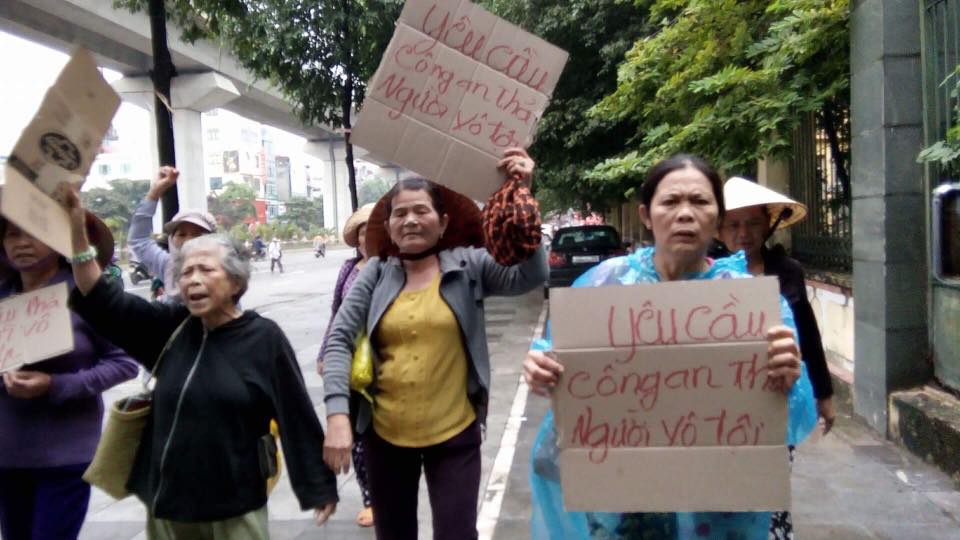 Yêu cầu
Công an thả
Người vô tội
Yêu cầu
Công an thả
Người vô tội